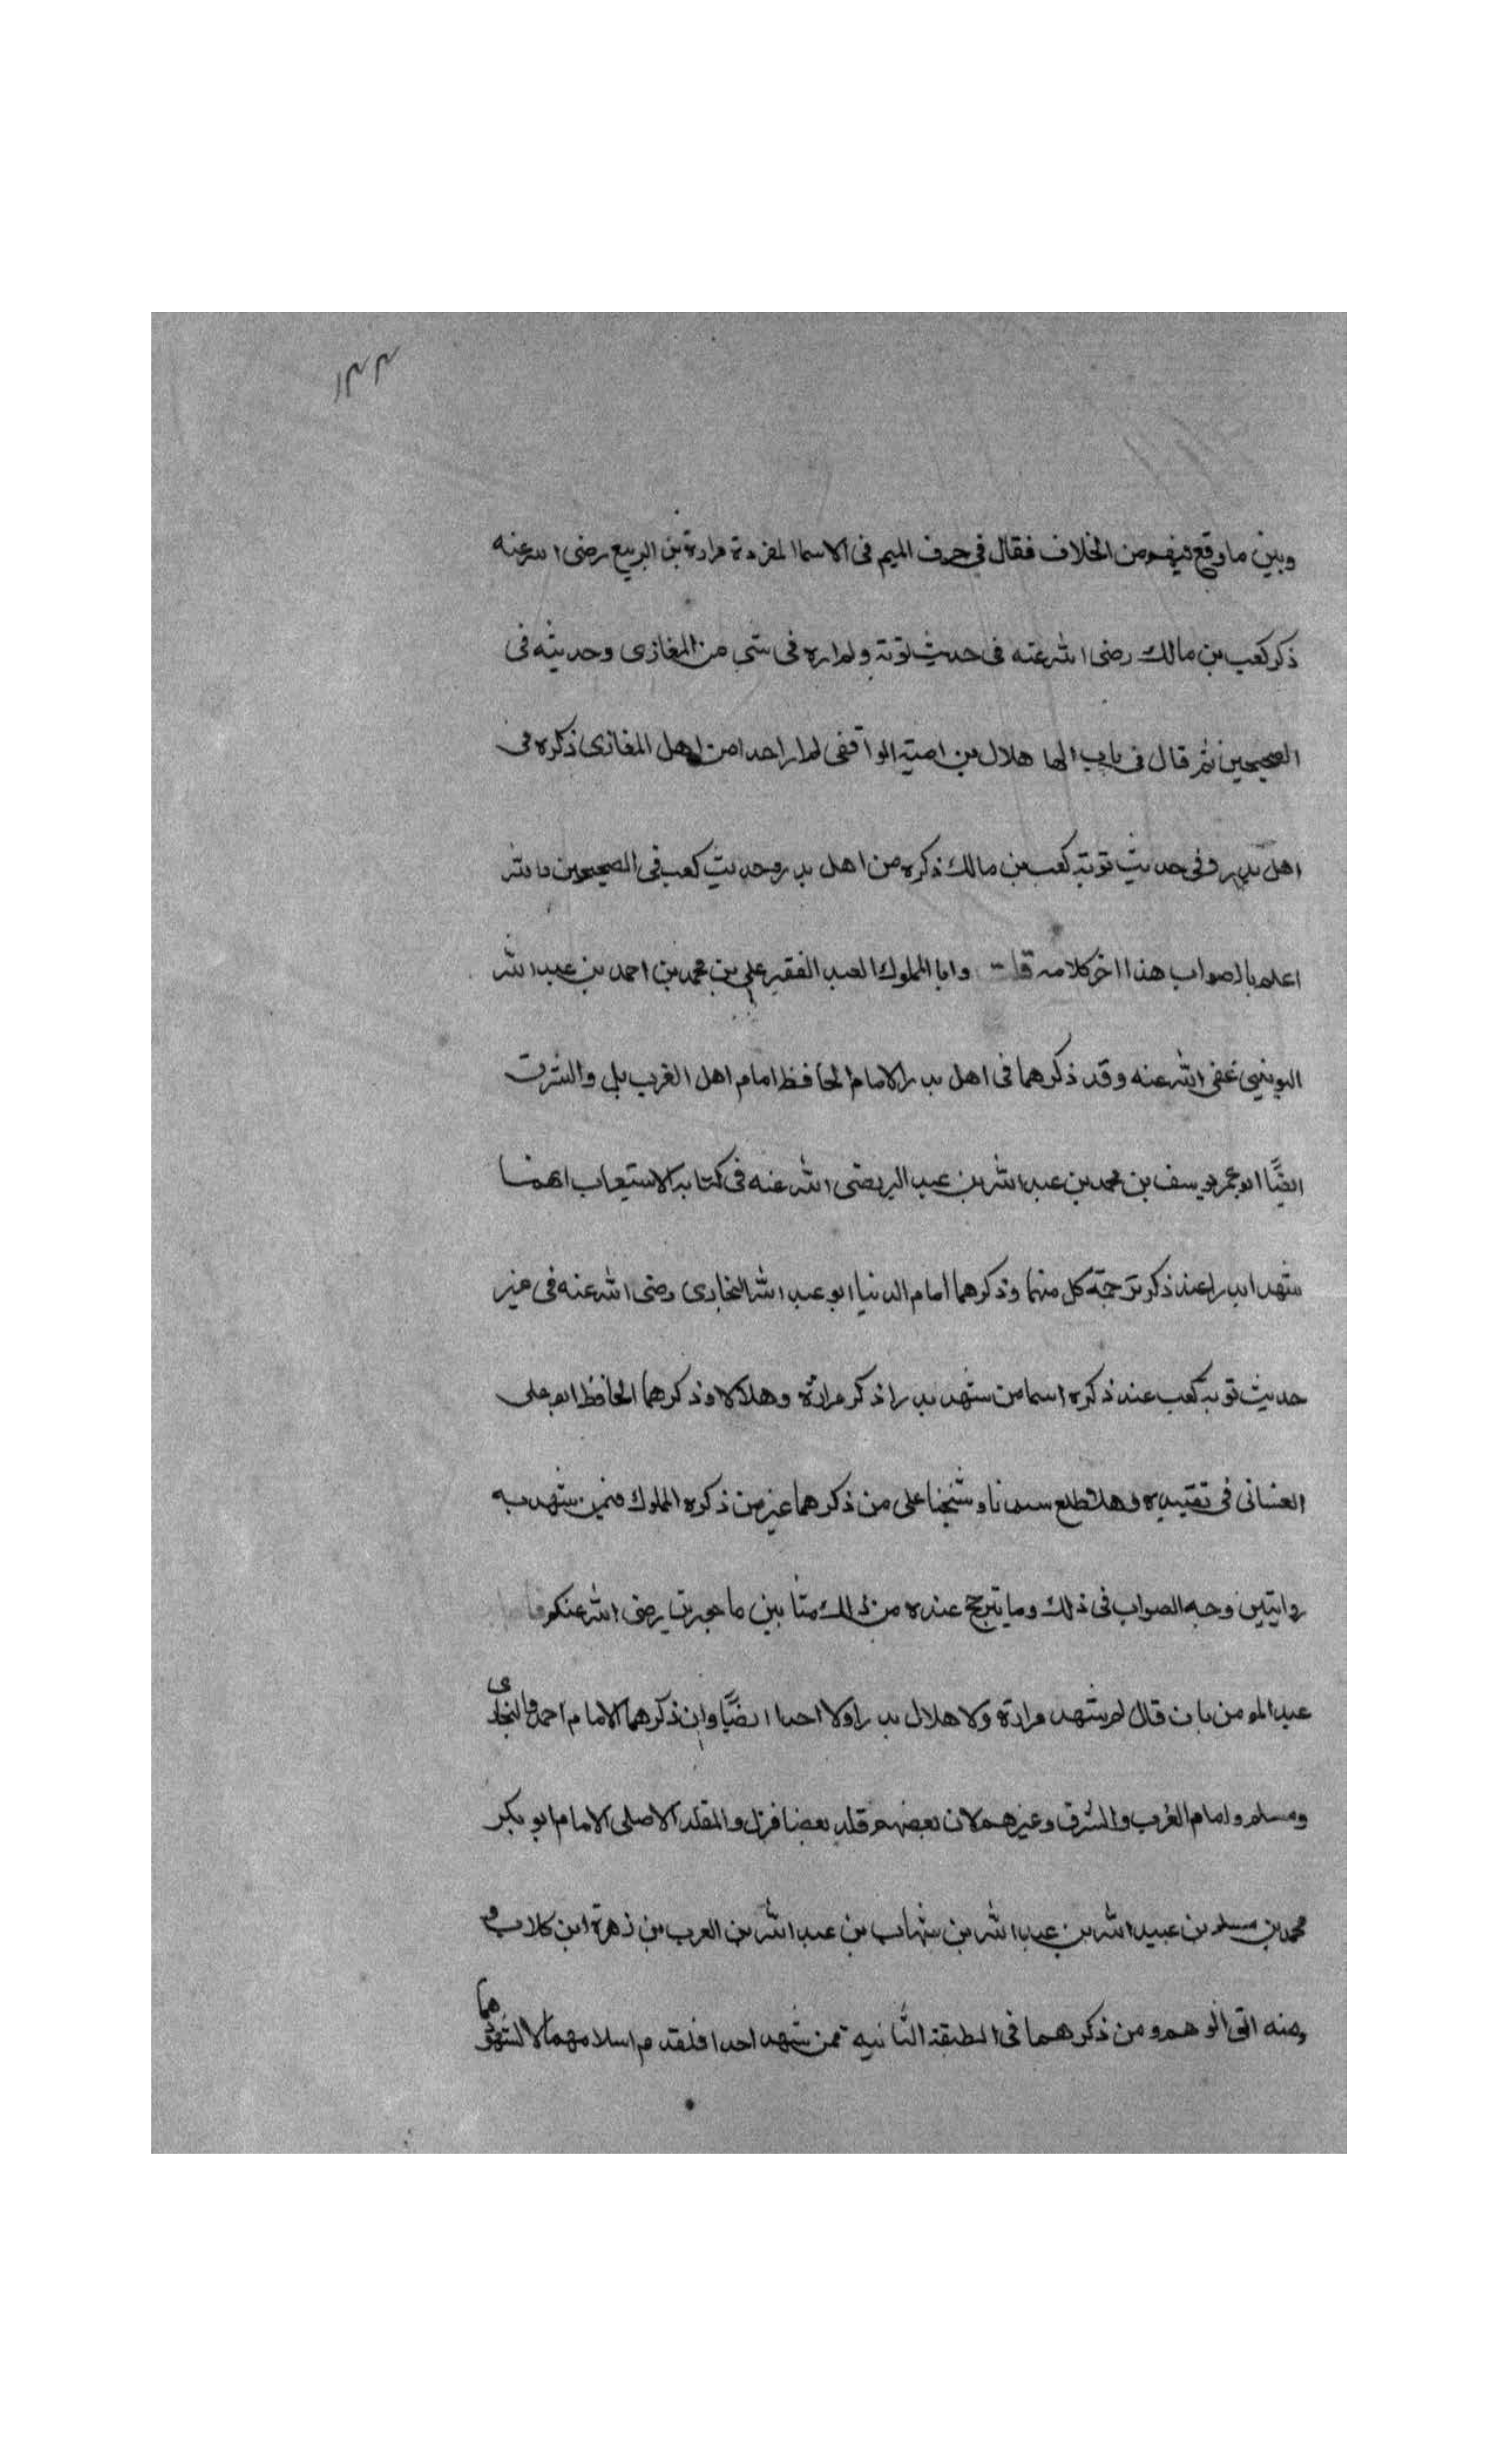 ١٣٣
وبين ما وقع فيه من الخلاف فقال في حرف الميم في الاسما المفردة مرارة بن الربيع رضى الله عنه
ذكر كعب بن مالك رضى الله عنه في حديث توبته ولم اره في شى من المغازى وحديثه في
الصحيحين ثم قال في باب الها هلال بن امية الواقفى لم ار احدا من اهل المغازى ذكره في
اهل بدر وفي حديث توبة كعب بن مالك ذكره من اهل بدر وحديث كعب في الصحيحين والله
اعلم بالصواب هذا اخر كلامه قلت وانا المملوك العبد الفقير على بن محمد بن احمد بن عبد الله
اليونينى عفى الله عنه وقد ذكرهما في اهل بدر الامام الحافظ امام اهل الغرب بل والشرق
ايضًا ابو عمر يوسف بن محمد بن عبد الله بن عبد البر رضى الله عنه في كتابه الاستيعاب انهما
شهدا بدرا عند ذكر ترجمة كل منهما وذكرهما امام الدنيا ابو عبد الله البخارى رضى الله عنه في غير
حديث توبة كعب عند ذكره اسما من شهد بدرا ذكر مرارة وهلالا وذكرهما الحافظ ابو على
الغسانى في تقييده وهل اطلع سيدنا وشيخنا على من ذكرهما غير من ذكره المملوك فيمن شهد به
روايتين وجه الصواب في ذلك وما يترجح عنده من ذلك مثابين ماجورين رضى الله عنكم
عبد المومن بان قال لم يشهد مرارة ولا هلال بدرا ولا احدا ايضًا وان ذكرهما الامام احمد والبخارى
ومسلم وامام الغرب والشرق وغيرهم لان بعضهم قلد بعضا فزل والمقلد الاصلى الامام ابو بكر
محمد بن مسلم بن عبيد الله بن عبد الله بن شهاب بن عبد الله بن الحرب بن زهرة ابن كلاب و
منه اتى الوهم ومن ذكرهما في الطبقة الثانيه ممن شهد احدا فلقدم اسلامهما لا لشهودهما